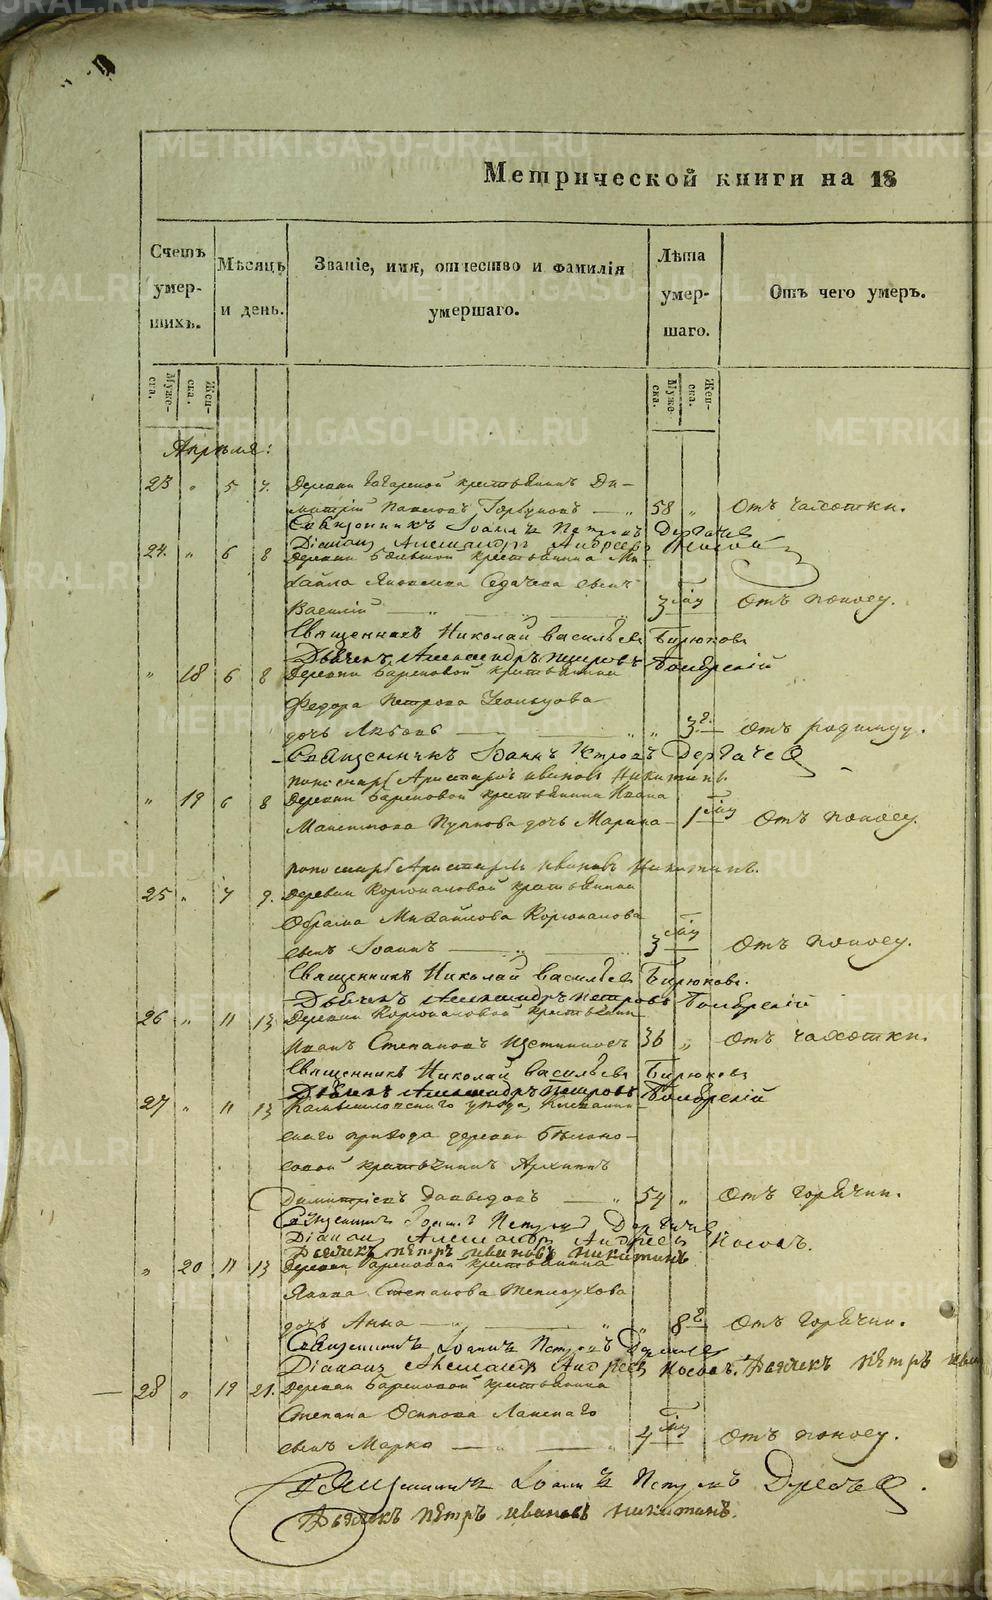 Метрической книги на 18
Счетъ умершихъ.
Мѣсяцъ и день.
Званіе, имя, отчество и фамилія умершаго.
Лѣта умершаго.
Отъ чего умеръ.
Мужеска.
Женска.
Мужеска.
Женска.
Апрѣля:
23 " 5 7. Деревни крестьянинъ Ди-
митрій Павловъ Горбуновъ — " 58 " Отъ чахотки.
Священникъ Іоаннъ Петровъ Дергачев
Діаконъ Александръ Андреевъ Носовъ
24. " 6 8 Деревни крестьянина Ми-
хаила Яковлева Седачева сынъ
Василій — " — " 3 мѣу Отъ поносу.
Священникъ Николай Васильевъ Бирюковъ
Дьячекъ Александръ Петровъ
" 18 6 8 Деревни Бареновой крестьянина
Федора Петрова
дочь Любовь — " " 3 д. Отъ родимцу.
Священникъ Іоаннъ Петровъ Дергачев
пономарь Аристархъ Ивановъ Никитинъ.
" 19 6 8 Деревни Бареновой крестьянина Ивана
Максимова Пупкова дочь Марина — 1 мѣу Отъ поносу.
пономарь Аристархъ Ивановъ Никитинъ.
25 " 7 9. Деревни Корюкаловой крестьянина
Михайлова Корюкалова
сынъ Іоаннъ — " 3 мѣу Отъ поносу.
Священникъ Николай Васильевъ Бирюковъ.
Дьячекъ Александръ Петровъ
26 " 11 13 Деревни Корюкаловой крестьянин
Иванъ Степановъ Щетинновъ 36 " Отъ чахотки.
Священникъ Николай Васильевъ Бирюковъ
Дьячекъ Александръ Петровъ
27 " 11 13 Камышловскаго уѣзда,
скаго прихода деревни Бѣлоно-
совой крестьянинъ Архипъ
Димитріевъ Давыдовъ — " 54 " Отъ горячки.
Священникъ Іоаннъ Петровъ Дергачев
Діаконъ Александръ Андреевъ Носовъ.
Дьячекъ Петръ Ивановъ Никитинъ
" 20 11 13 Деревни Бареновой крестьянина
Якова Степанова Теплоухова
дочь Анна — " " " 8 д Отъ горячки.
Священникъ Іоаннъ Петровъ
Діаконъ Александръ Андреевъ Носовъ. Дьячекъ Петръ
28 " 19 21. Деревни Бареновой крестьянина
Степана Осипова Ланскаго
сынъ Марко — " — 4 мѣу Отъ поносу.
Священникъ Іоаннъ Петровъ
Дьячекъ Петръ Ивановъ Никитинъ.
METRIKI.GASO-URAL.RU